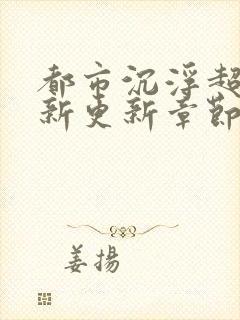 都市沉浮超
新更新章節
姜揚